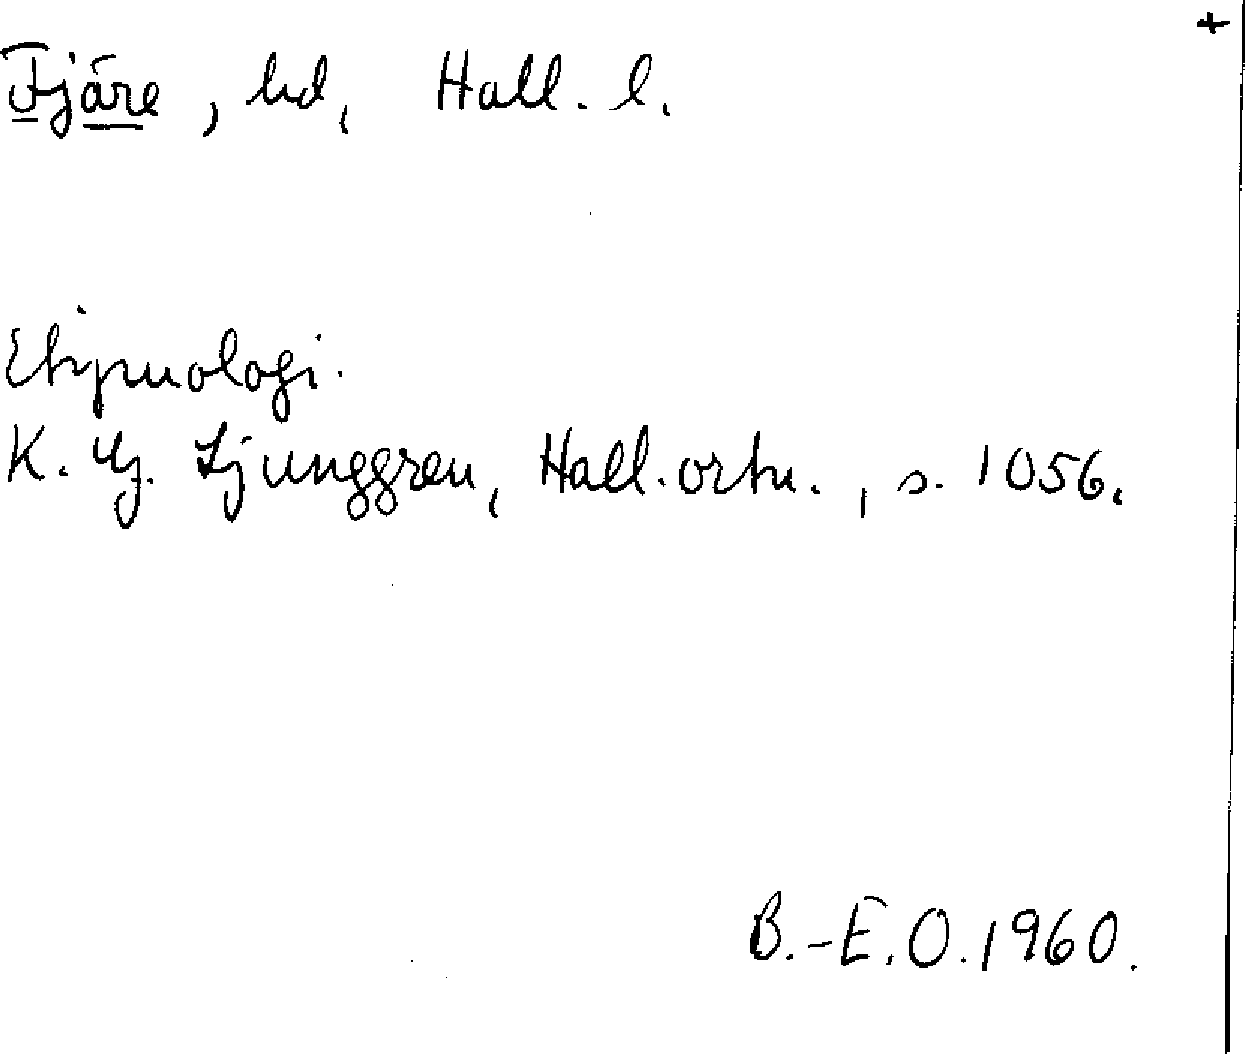 +
Fjäre, hd, Hall. l.
Etymologi.
K. G. Ljunggren, Hall. ortn., s. 1056.
B.-E. O. 1960.